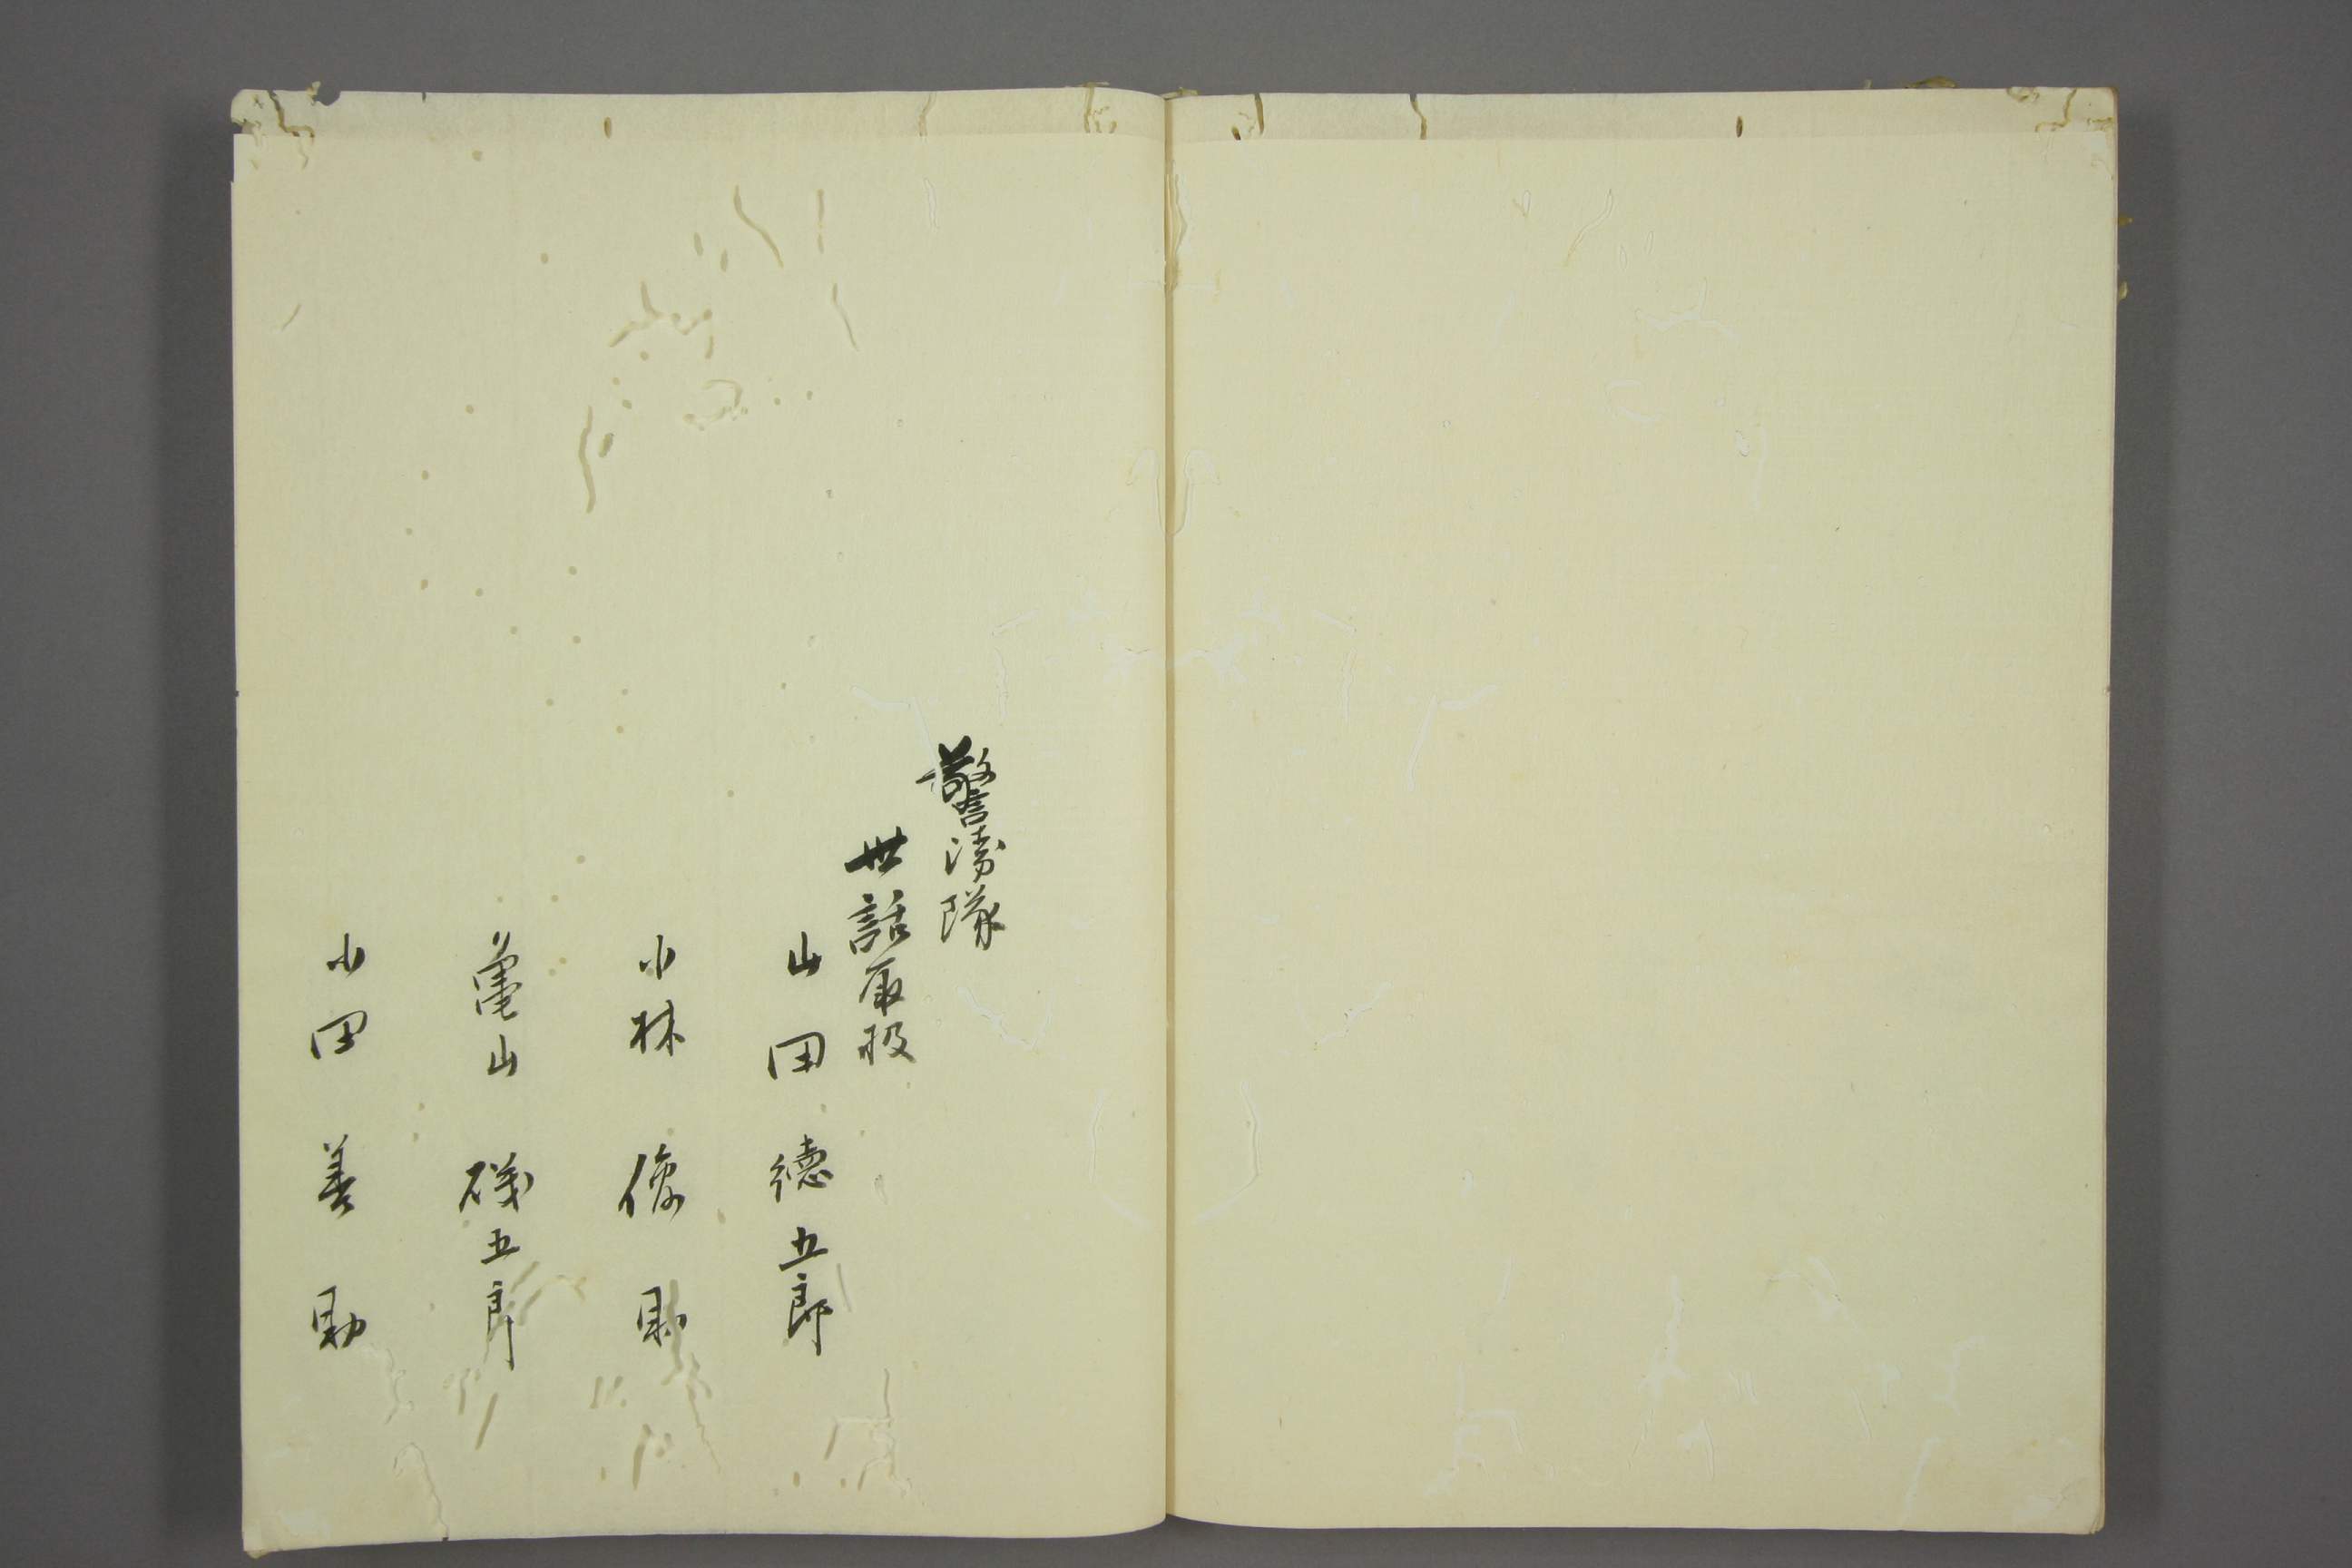 警衛隊
世話取扱
山田徳五郎
小林
亀山磯五郎
小田善助